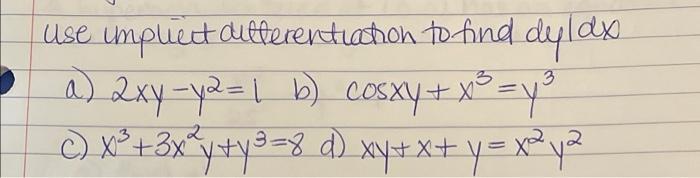 use implicit differentiation to find dy/dx
a) 2xy-y²=1 b) cosxy+x³=y³
c) x³+3x²y+y³=8 d) xy+x+y=x²y²